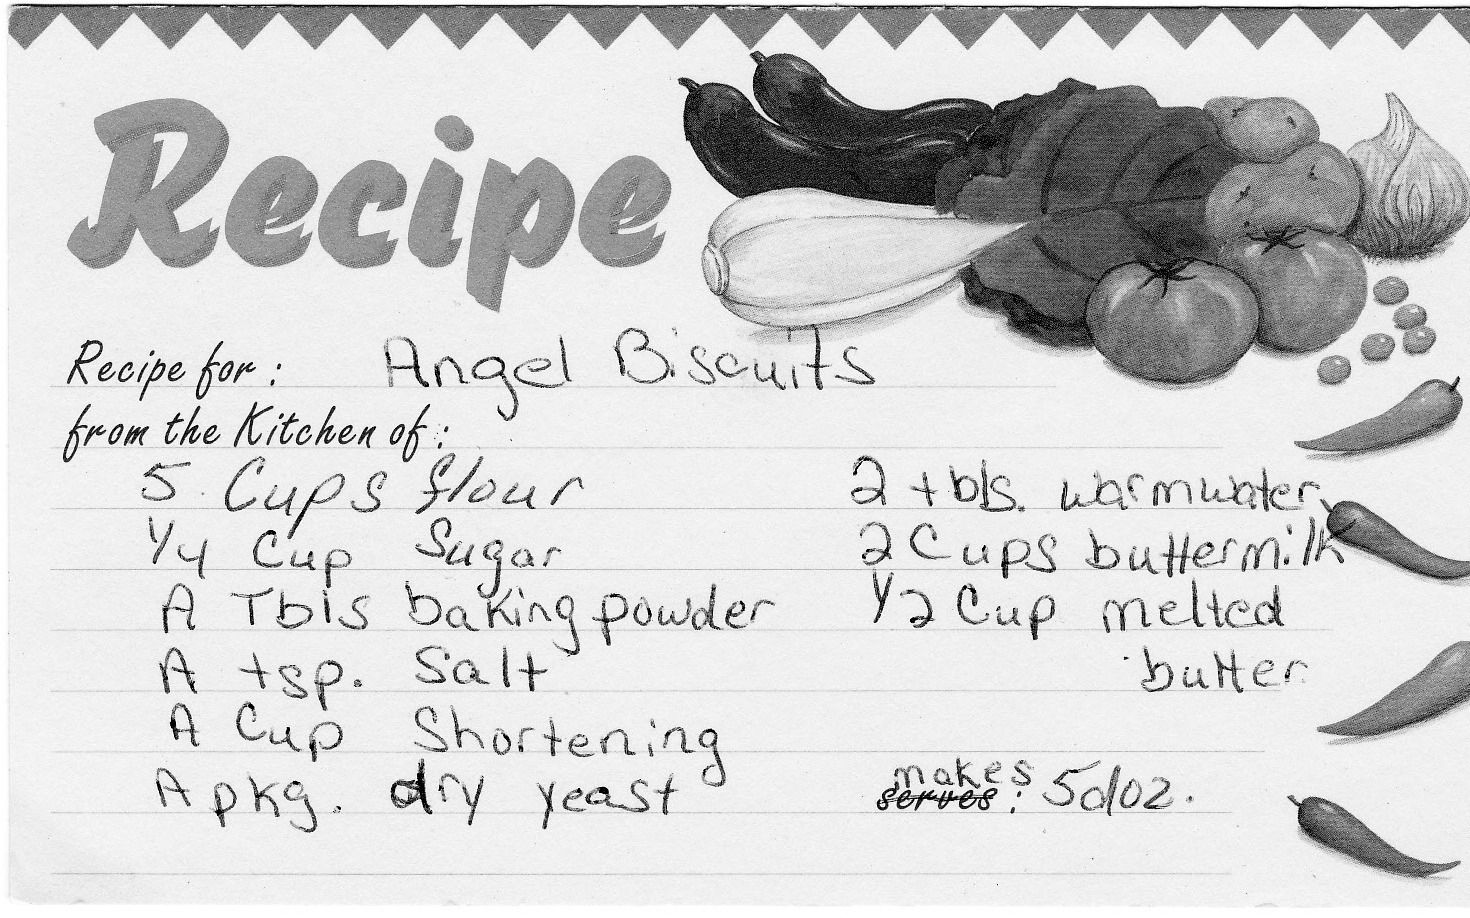 Recipe
Recipe for : Angel Biscuits
from the Kitchen of :
5 Cups flour
1/4 Cup Sugar
A Tbls baking powder
A tsp. Salt
A Cup Shortening
A pkg. dry yeast
2 tbls. warm water
2 Cups buttermilk
1/2 Cup melted
butter
makes
serves : 5 doz.